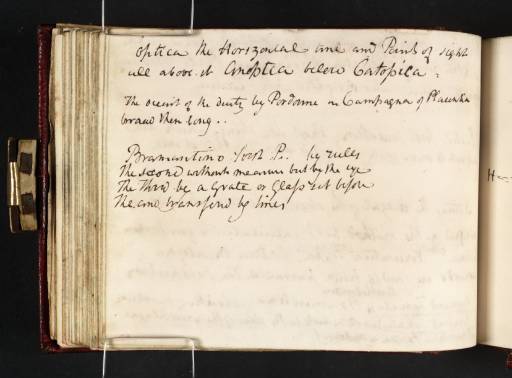 Optica the Horizontal line and Point of sight
all above it Anoptica below Catopica.
The ascent of the deity by Pordone in Campagna of Placentia
broad then long..
Bramantino first P. by rules
The second without measure but by the eye
The third by a Grate or Glass set before
The and transferrd by lines
H